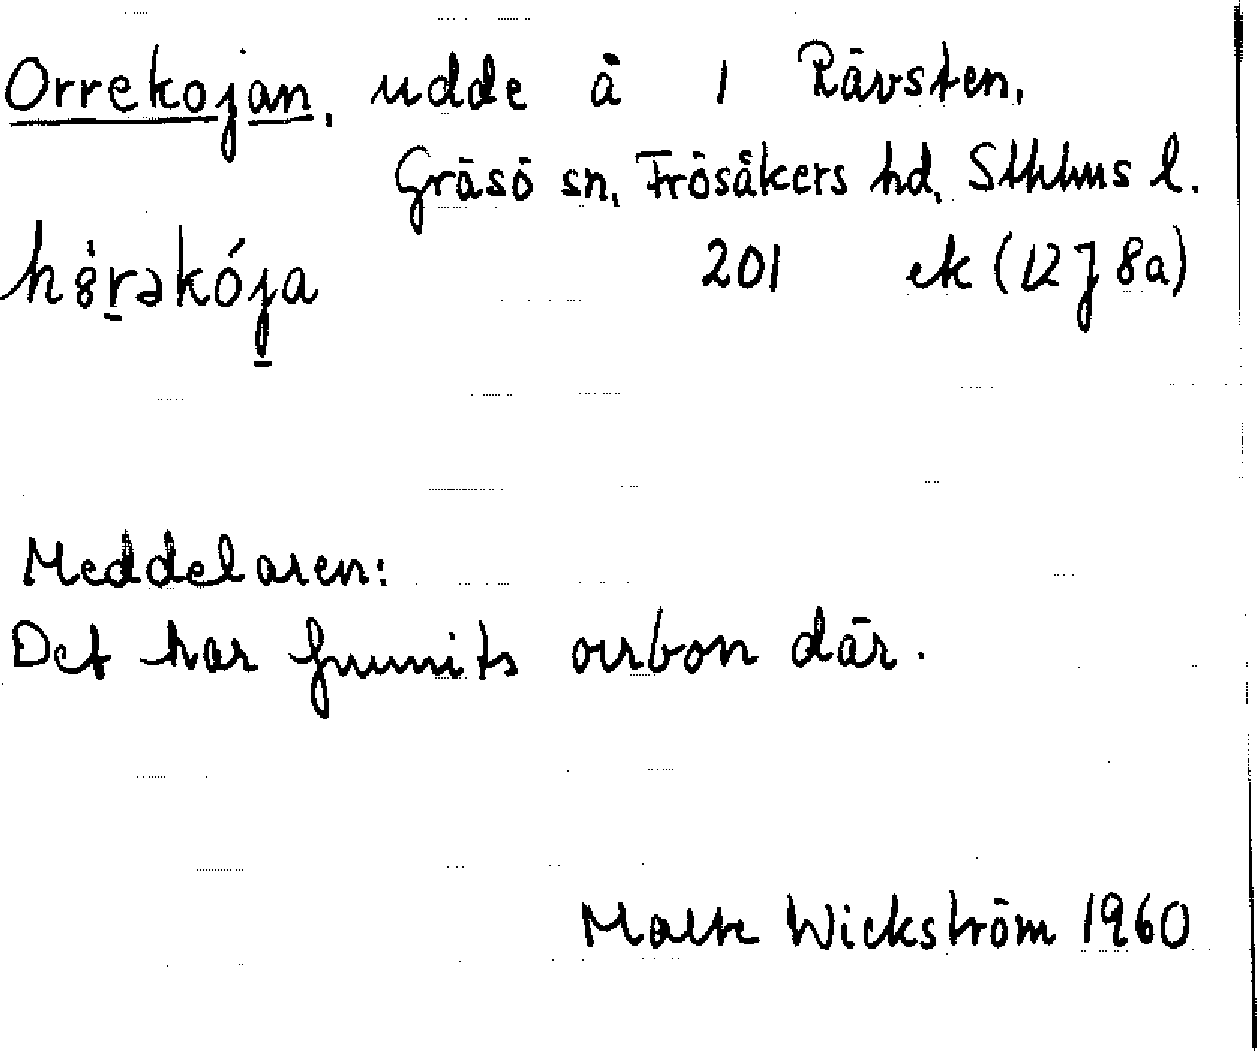 Orrekojan, udde å 1 Rävsten,
Gräsö sn, Frösåkers hd, Sthlms l.
201 ek (12J 8a)
Meddelaren:
Det har funnits orrbon där.
Malte Wickström 1960